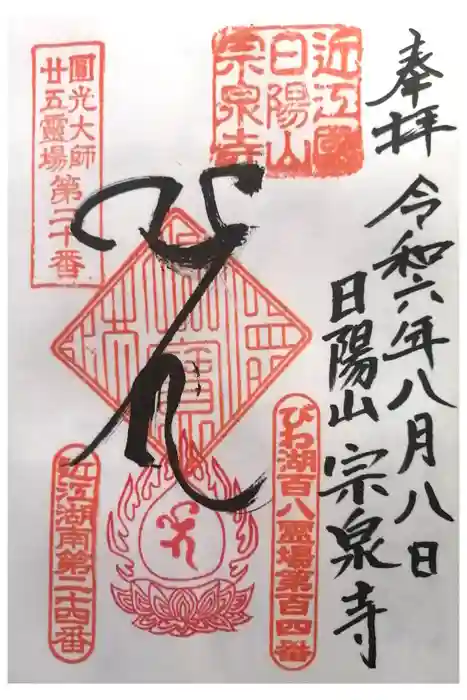 奉拝 令和六年八月八日
日陽山 宗泉寺
近江國
日陽山
宗泉寺
びわ湖百八霊場第百四番
圓光大師
廿五靈場第二十番
近江湖南第二十四番